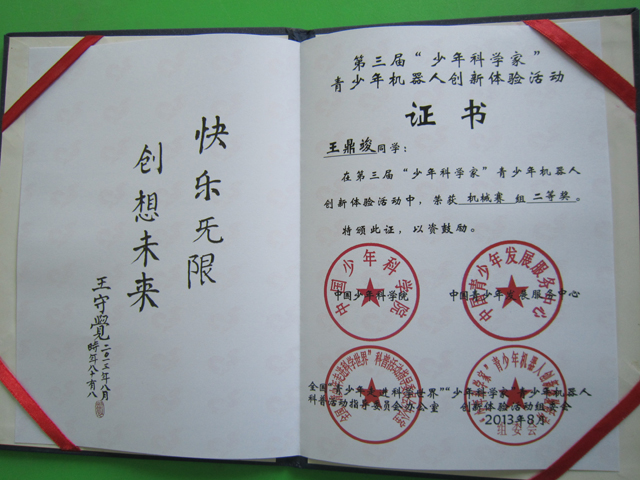 快乐无限
创想未来
王守覺
二〇一三年八月
时年八十有八
第三届“少年科学家”
青少年机器人创新体验活动
证书
王鼎竣同学：
在第三届“少年科学家”青少年机器人
创新体验活动中，荣获 机械赛 组 二等奖。
特颁此证，以资鼓励。
中国少年科学院
中国少年科学院
中国青少年发展服务中心
中国青少年发展服务中心
全国“青少年走进科学世界”
科普活动指导委员会办公室
“少年科学家”青少年机器人
创新体验活动组委会
组委会
2013年8月